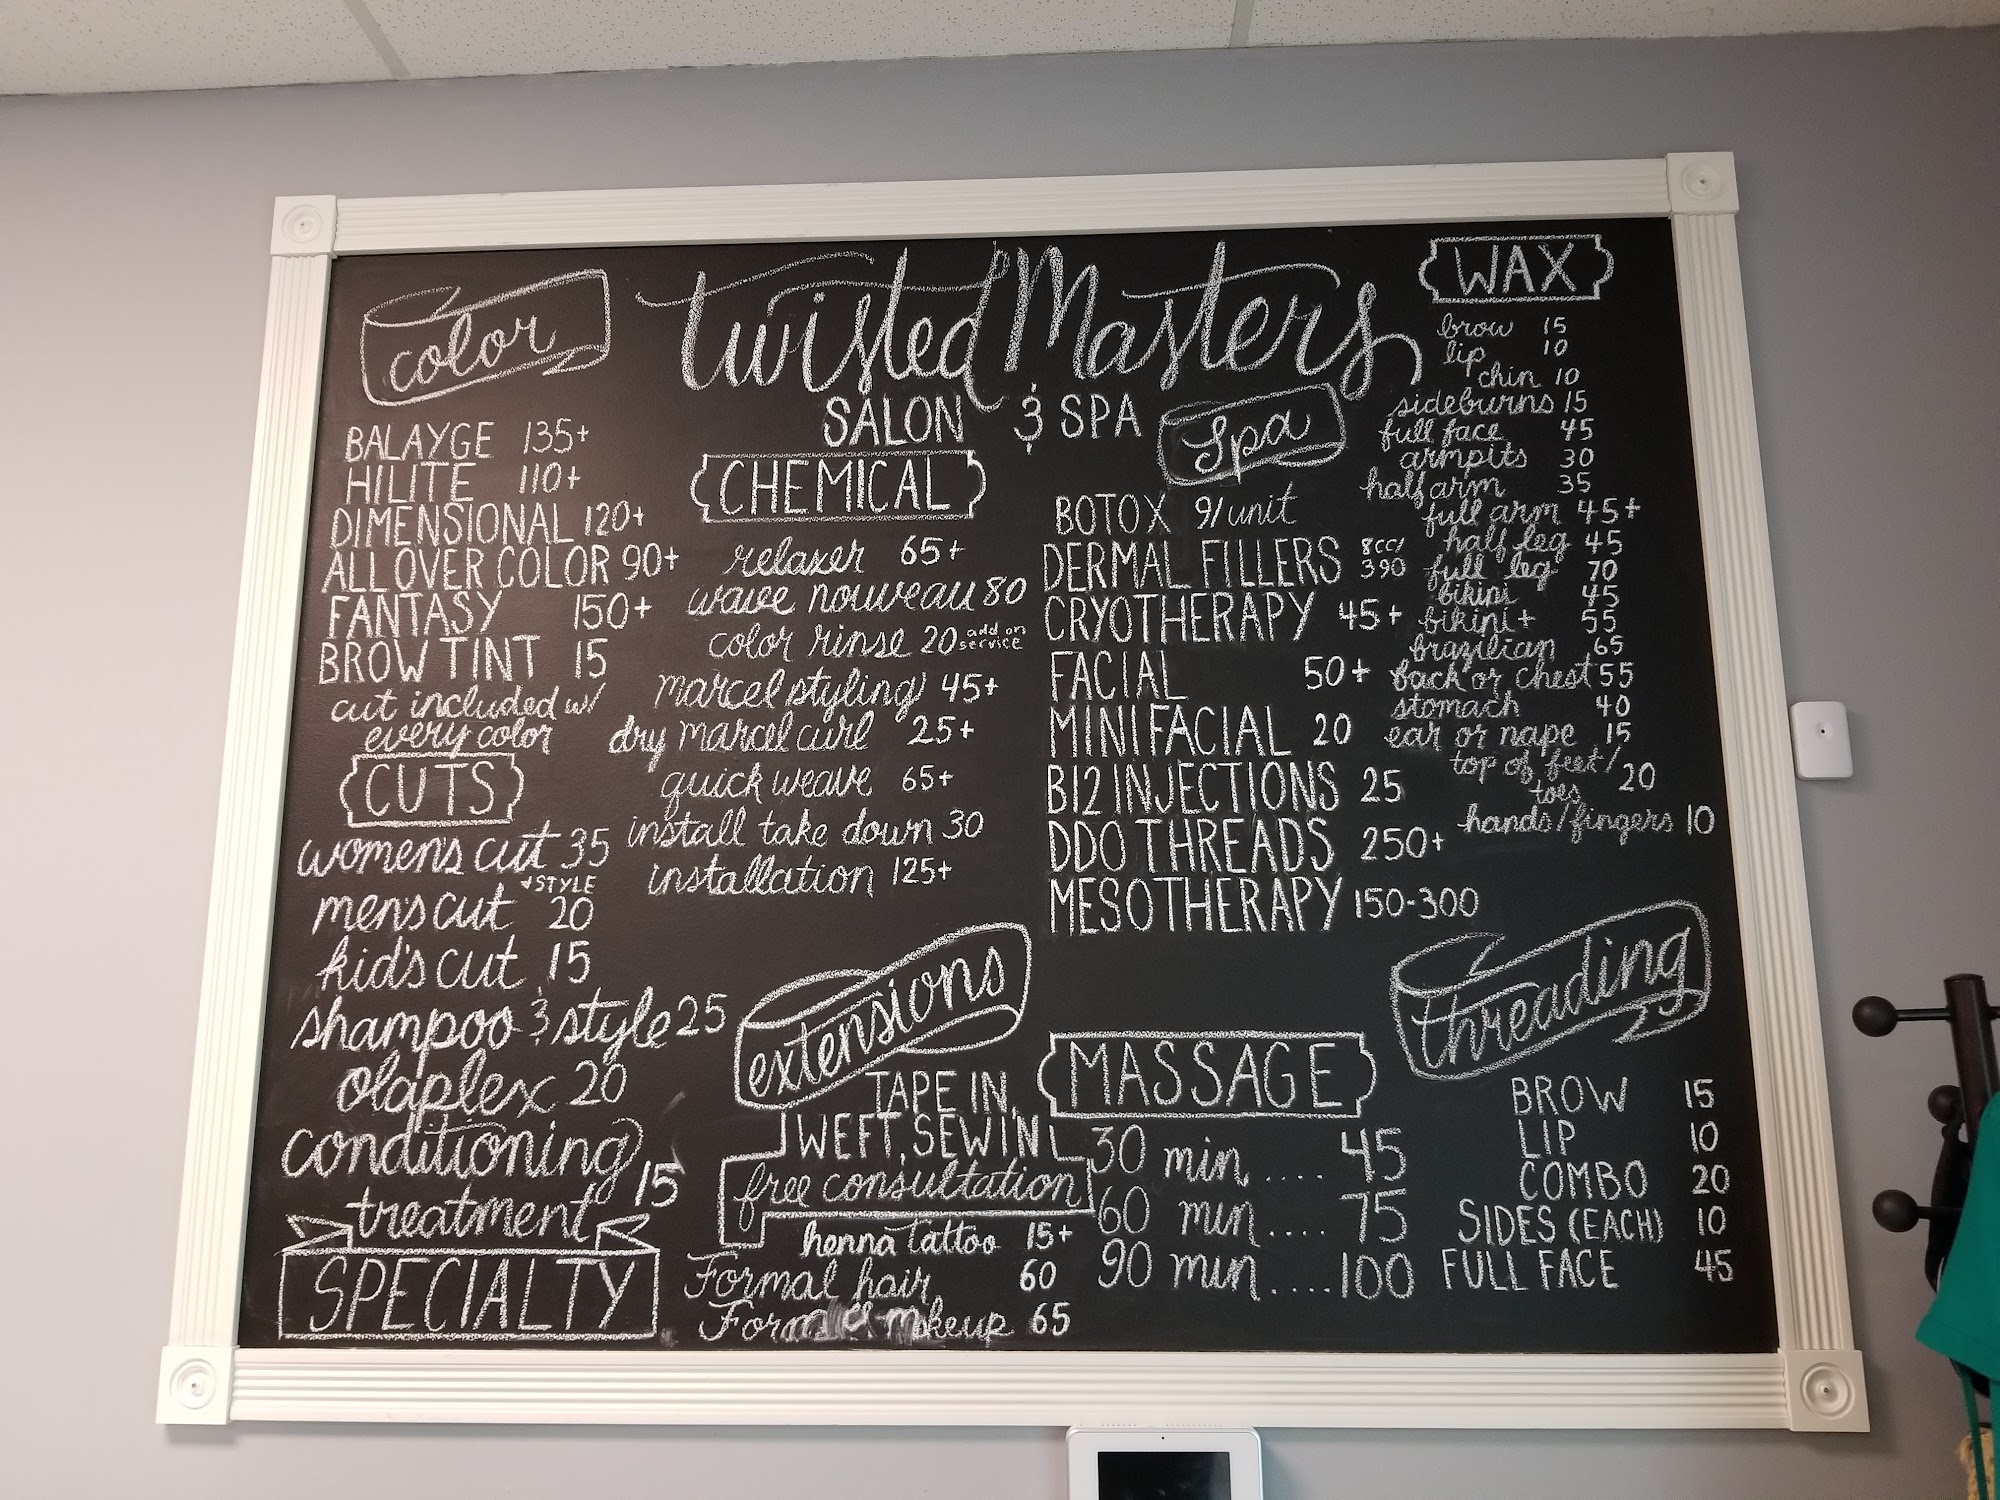 twisted Masters
SALON & SPA
color
BALAYGE 135+
HILITE 110+
DIMENSIONAL 120+
ALL OVER COLOR 90+
FANTASY 150+
BROW TINT 15
cut included w/
every color
CUTS
womens cut 35
+STYLE
mens cut 20
kid's cut 15
shampoo & style 25
olaplex 20
conditioning
treatment 15
SPECIALTY
henna tattoo 15+
Formal hair 60
Formal makeup 65
CHEMICAL
relaxer 65+
wave nouveau 80
color rinse 20 add on
service
marcel styling 45+
dry marcel curl 25+
quick weave 65+
install take down 30
installation 125+
extensions
TAPE IN,
WEFT, SEW IN
free consultation
Spa
BOTOX 9/unit
DERMAL FILLERS 8cc/
390
CRYOTHERAPY 45+
FACIAL 50+
MINI FACIAL 20
B12 INJECTIONS 25
DDO THREADS 250+
MESOTHERAPY 150-300
MASSAGE
30 min .... 45
60 min .... 75
90 min .... 100
WAX
brow 15
lip 10
chin 10
sideburns 15
full face 45
armpits 30
half arm 35
full arm 45+
half leg 45
full leg 70
bikini 45
bikini+ 55
brazilian 65
back or chest 55
stomach 40
ear or nape 15
top of feet/
toes 20
hands/fingers 10
threading
BROW 15
LIP 10
COMBO 20
SIDES (EACH) 10
FULL FACE 45